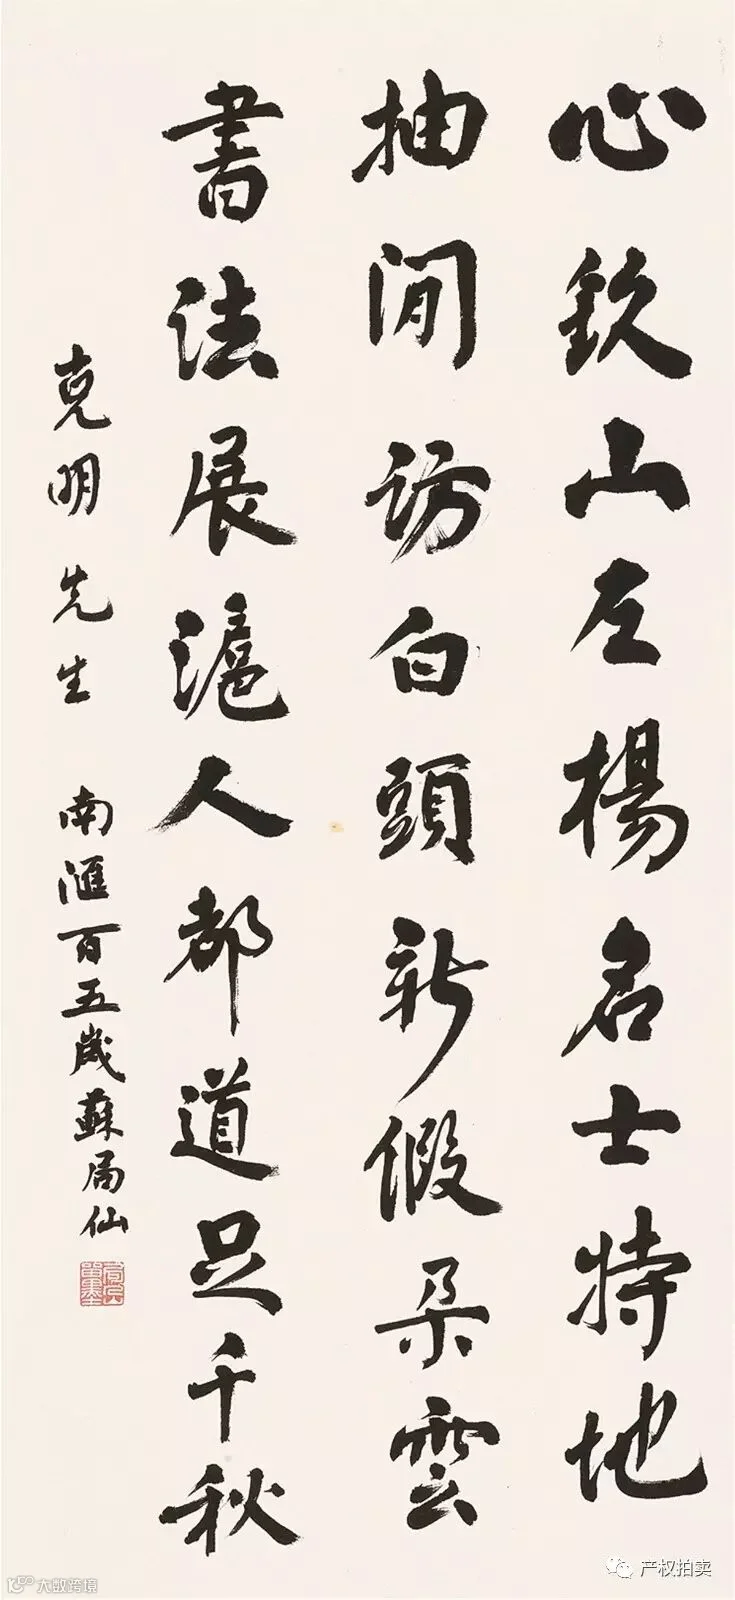 心欽山左楊名士特地
抽閒訪白頭新假朵雲
書法展滬人都道足千秋
克明先生 南滙百五歲蘇局仙
产权拍卖
大数跨境